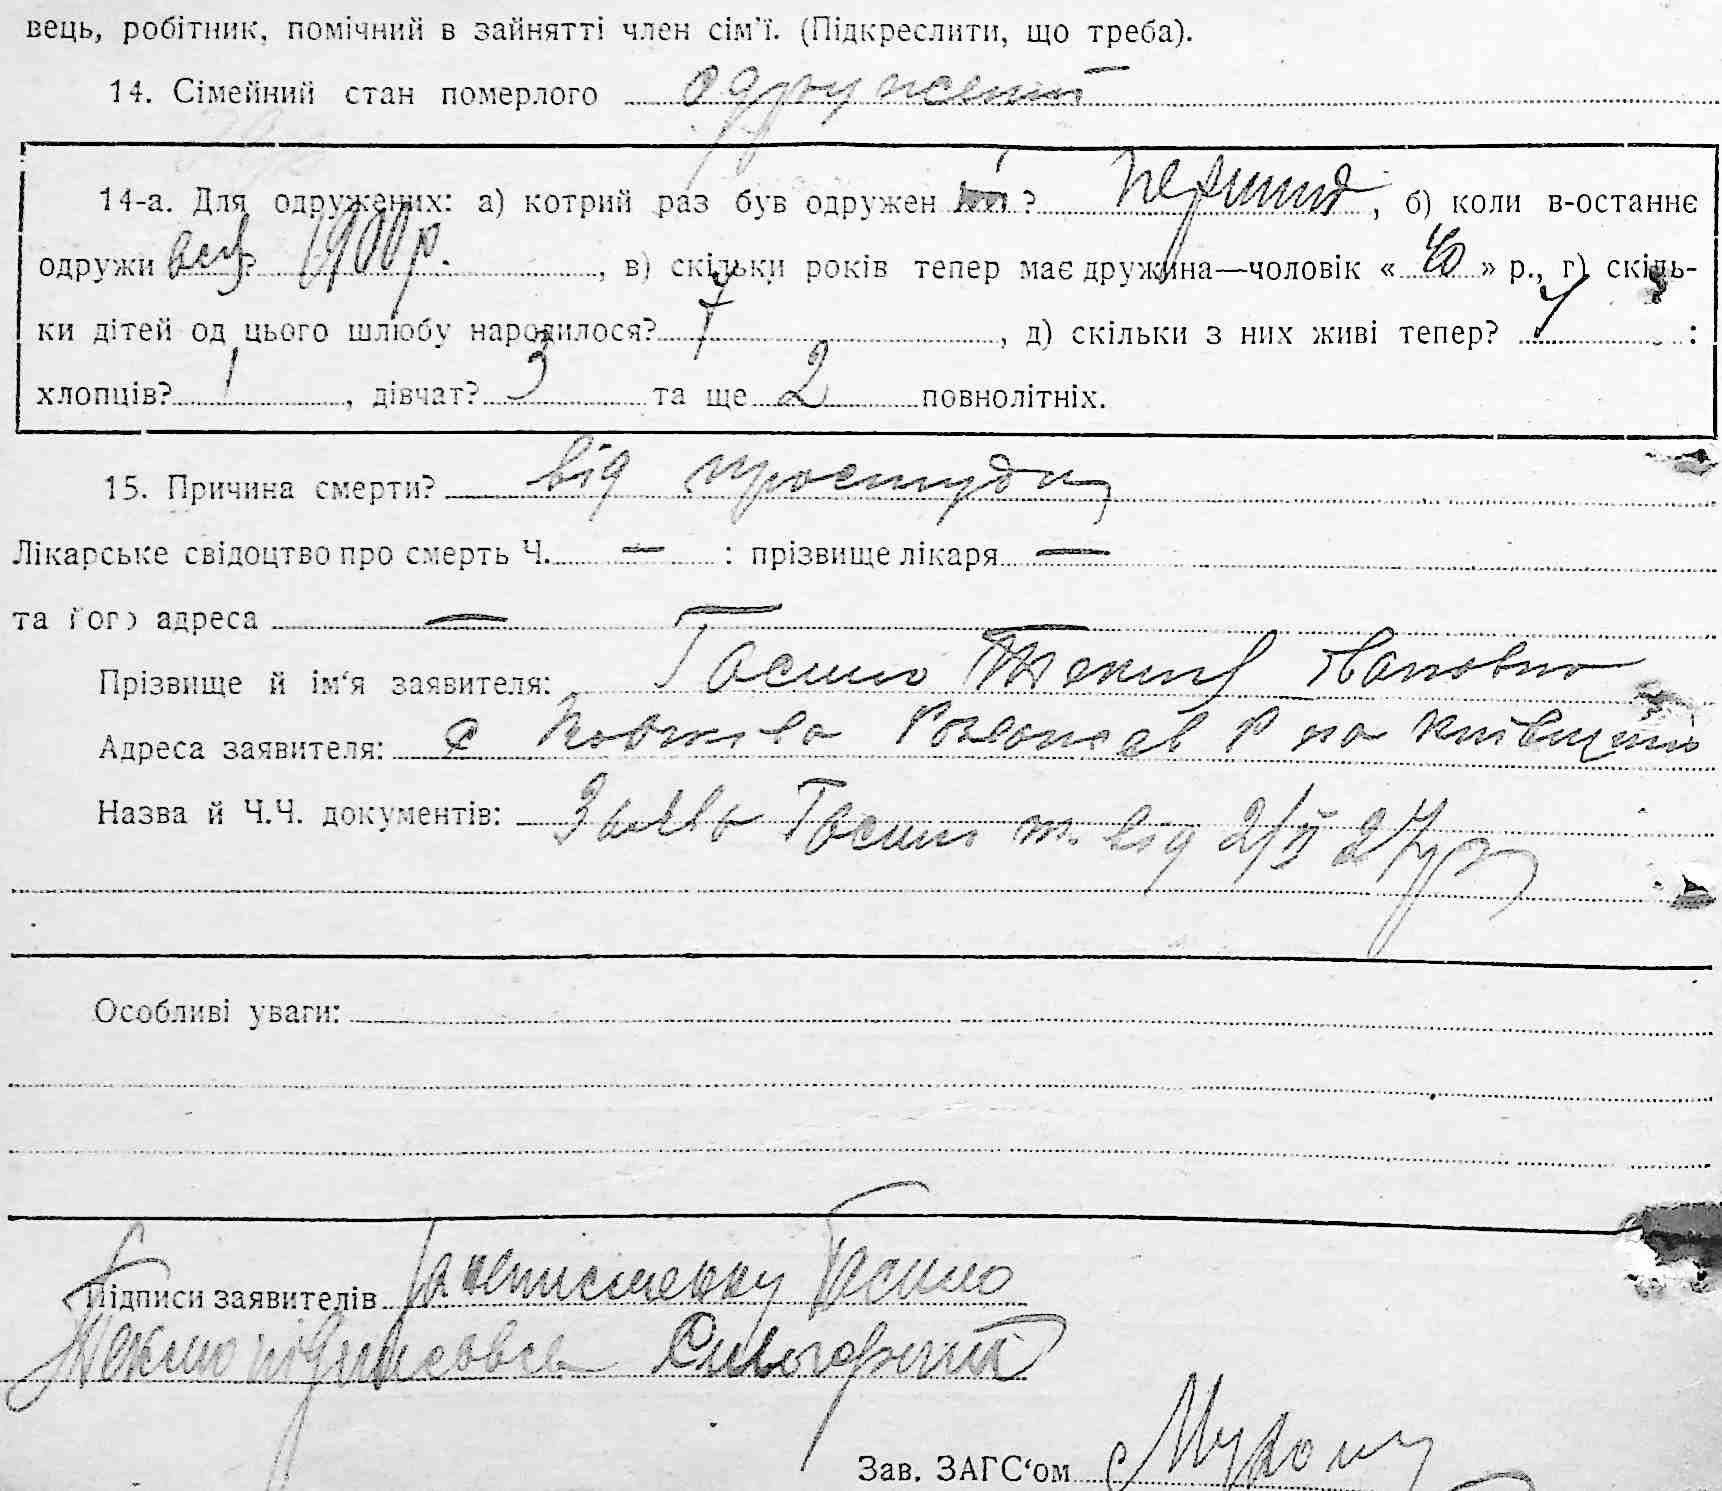 вець, робітник, помічний в зайнятті член сім'ї. (Підкреслити, що треба).
14. Сімейний стан померлого одружений
14-а. Для одружених: а) котрий раз був одружен ? перший, б) коли в-останнє
одружи вся? 1900 р., в) скільки років тепер має дружина—чоловік «40» р., г) скіль-
ки дітей од цього шлюбу народилося? 7, д) скільки з них живі тепер? 4 :
хлопців? 1, дівчат? 3 та ще 2 повнолітніх.
15. Причина смерти? від простуди
Лікарське свідоцтво про смерть Ч. — : прізвище лікаря —
та його адреса —
Прізвище й ім‘я заявителя: Гасило
Адреса заявителя: с на Київщині
Назва й Ч.Ч. документів: Заява від 2/II 27 р
Особливі уваги:
Підписи заявителів Гасило
підписався
Зав. ЗАГС‘ом